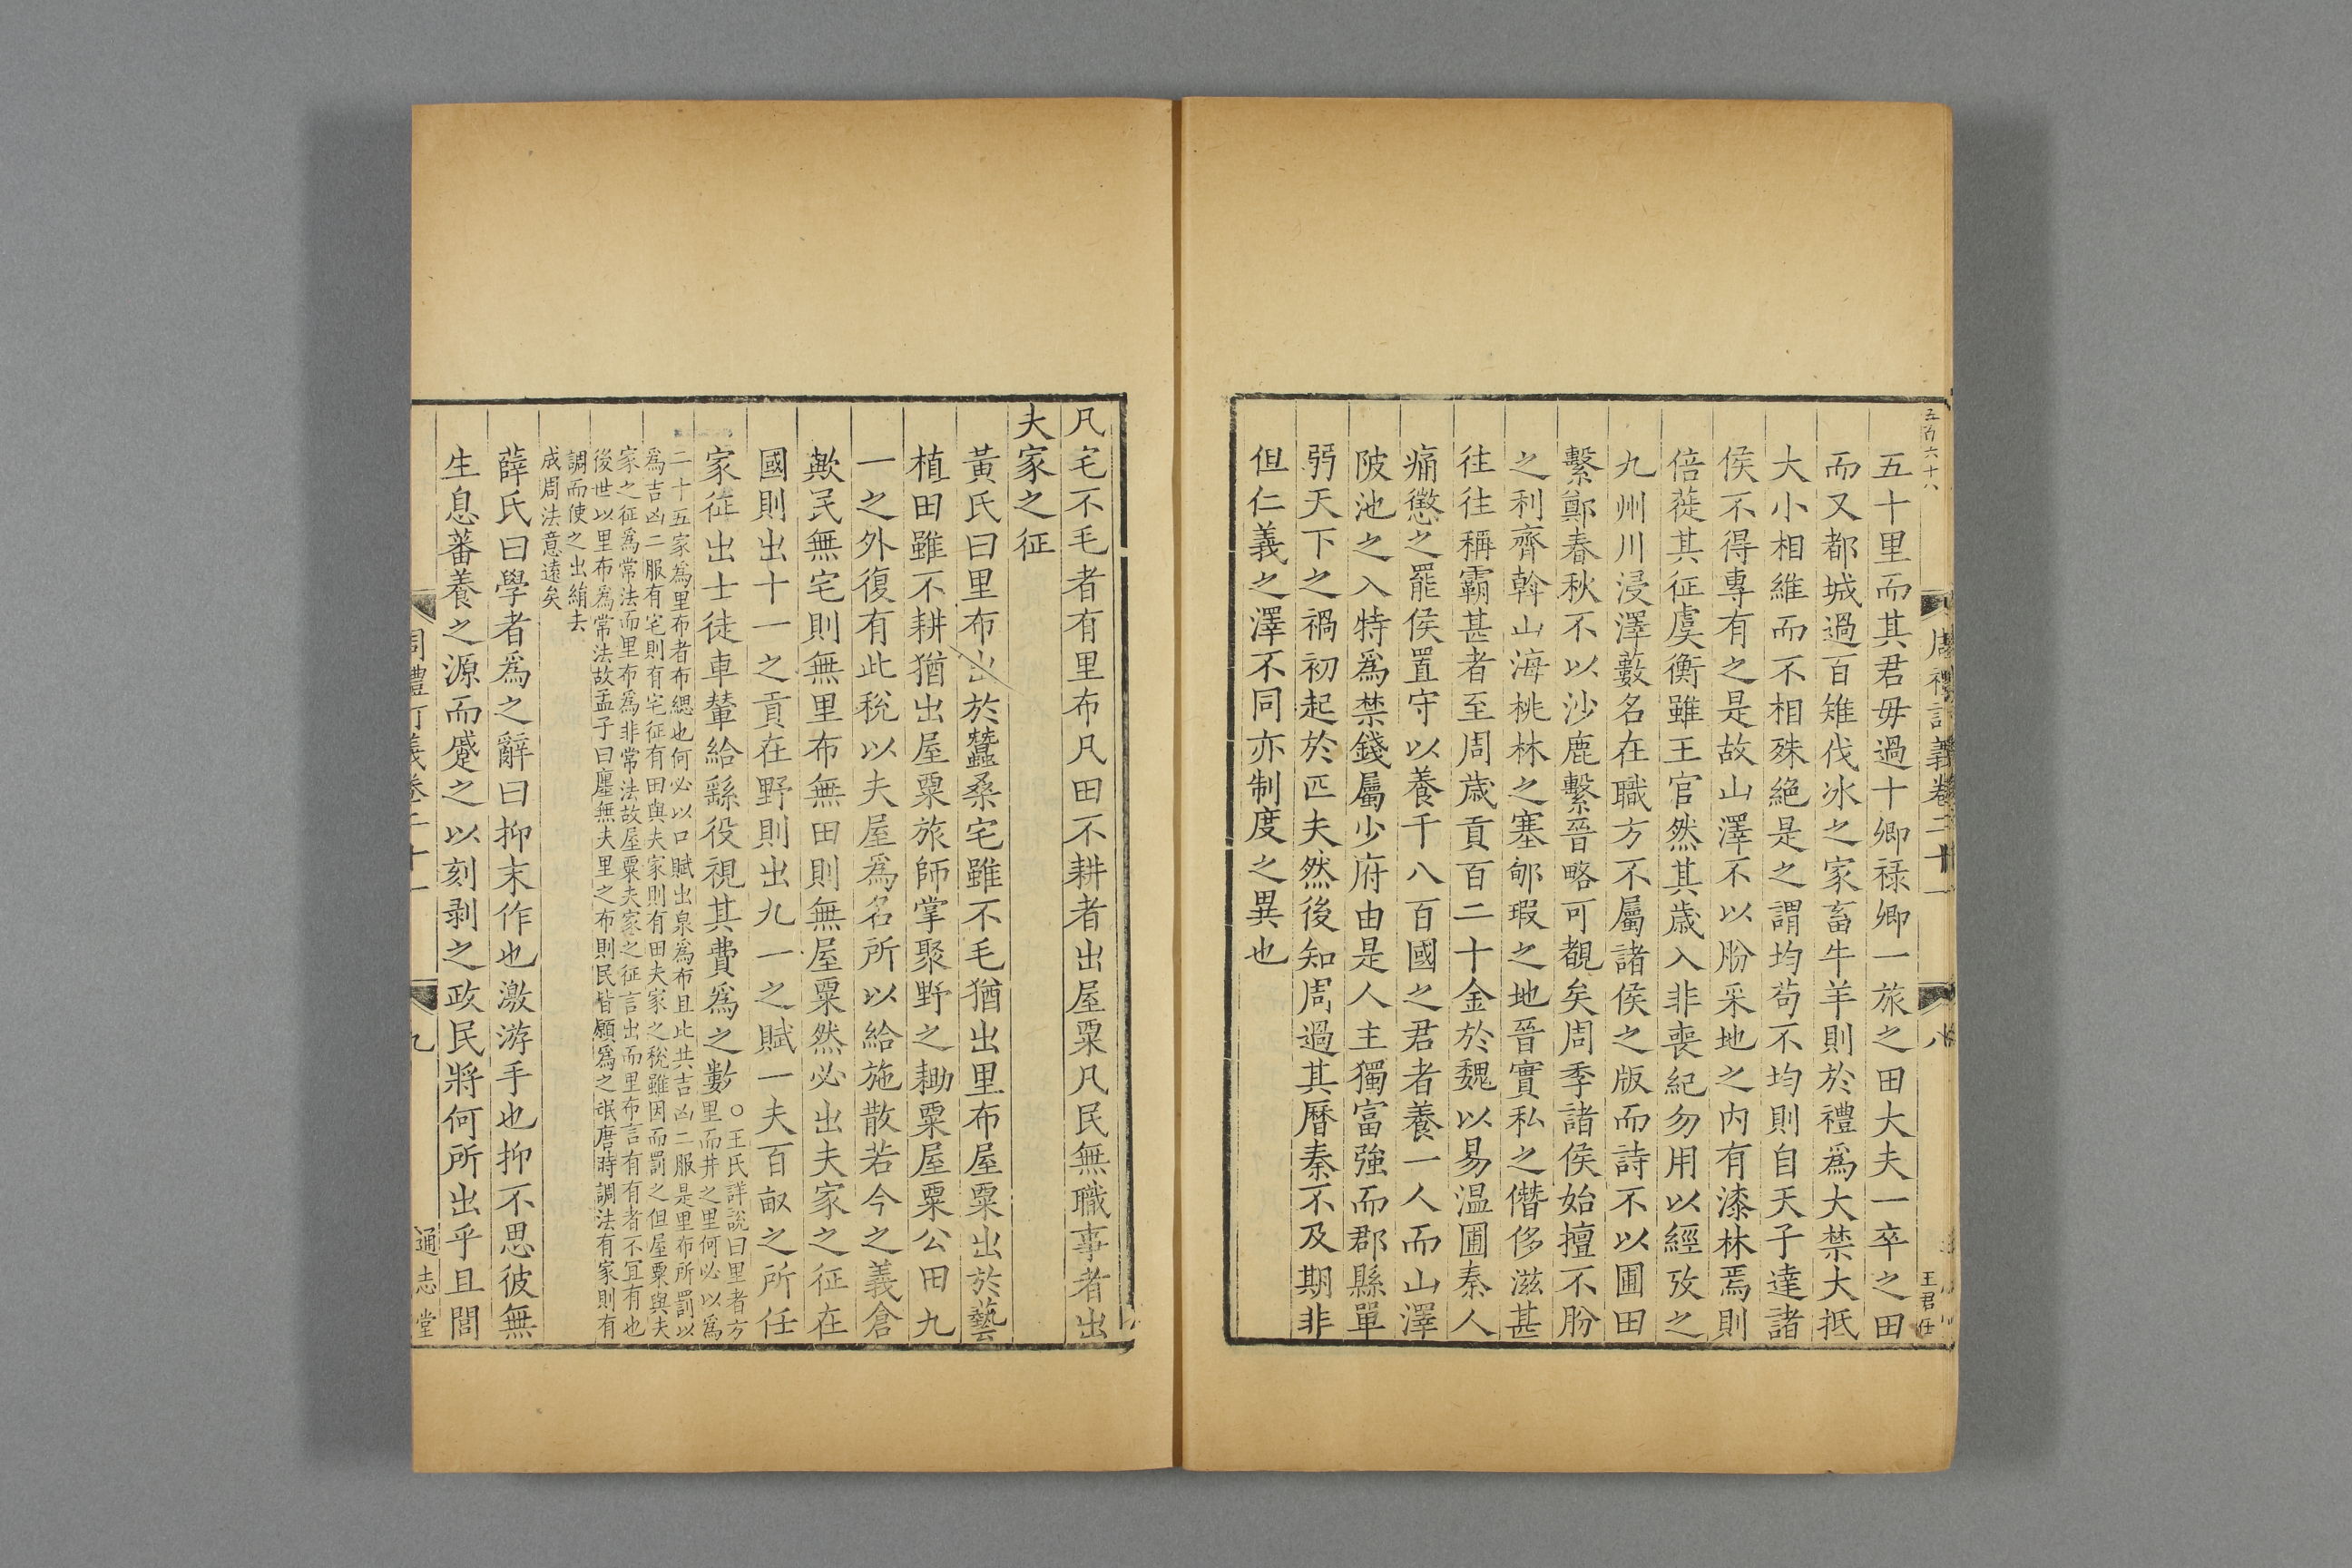 五百六十八
周禮訂義卷二十一
八
王君仕
五十里而其君毋過十卿祿卿一旅之田大夫一卒之田
而又都城過百雉伐冰之家畜牛羊則於禮爲大禁大抵
大小相維而不相殊絶是之謂均苟不均則自天子達諸
侯不得專有之是故山澤不以肦采地之内有漆林焉則
倍蓰其征虞衡雖王官然其歳入非喪紀勿用以經攷之
九州川浸澤藪名在職方不屬諸侯之版而詩不以圃田
繫鄭春秋不以沙鹿繫晉略可覩矣周季諸侯始擅不肦
之利齊斡山海桃林之塞郇瑕之地晉實私之僭侈滋甚
往往稱霸甚者至周歳貢百二十金於魏以易温圃秦人
痛懲之罷侯置守以養千八百國之君者養一人而山澤
陂池之入特爲禁錢屬少府由是人主獨富强而郡縣單
弱天下之禍初起於匹夫然後知周過其曆秦不及期非
但仁義之澤不同亦制度之異也
凡宅不毛者有里布凡田不耕者出屋粟凡民無職事者出
夫家之征
黃氏曰里布出於蠶桑宅雖不毛猶出里布屋粟出於藝
植田雖不耕猶出屋粟旅師掌聚野之耡粟屋粟公田九
一之外復有此稅以夫屋爲名所以給施散若今之義倉
歟民無宅則無里布無田則無屋粟然必出夫家之征在
國則出十一之貢在野則出九一之賦一夫百畝之所任
家征出士徒車輦給繇役視其費爲之數○王氏詳說曰里者方
里而井之里何必以爲
二十五家爲里布者布緦也何必以口賦出泉爲布且此共吉凶二服是里布所罰以
爲吉凶二服有宅則有宅征有田與夫家則有田夫家之稅雖因而罰之但屋粟與夫
家之征爲常法而里布爲非常法故屋粟夫家之征言出而里布言有有者不冝有也
後世以里布爲常法故孟子曰廛無夫里之布則民皆願爲之氓唐時調法有家則有
調而使之出絹去
成周法意遠矣
薛氏曰學者爲之辭曰抑末作也激游手也抑不思彼無
生息蕃養之源而蹙之以刻剥之政民將何所出乎且閭
周禮訂義卷二十一
九
通志堂